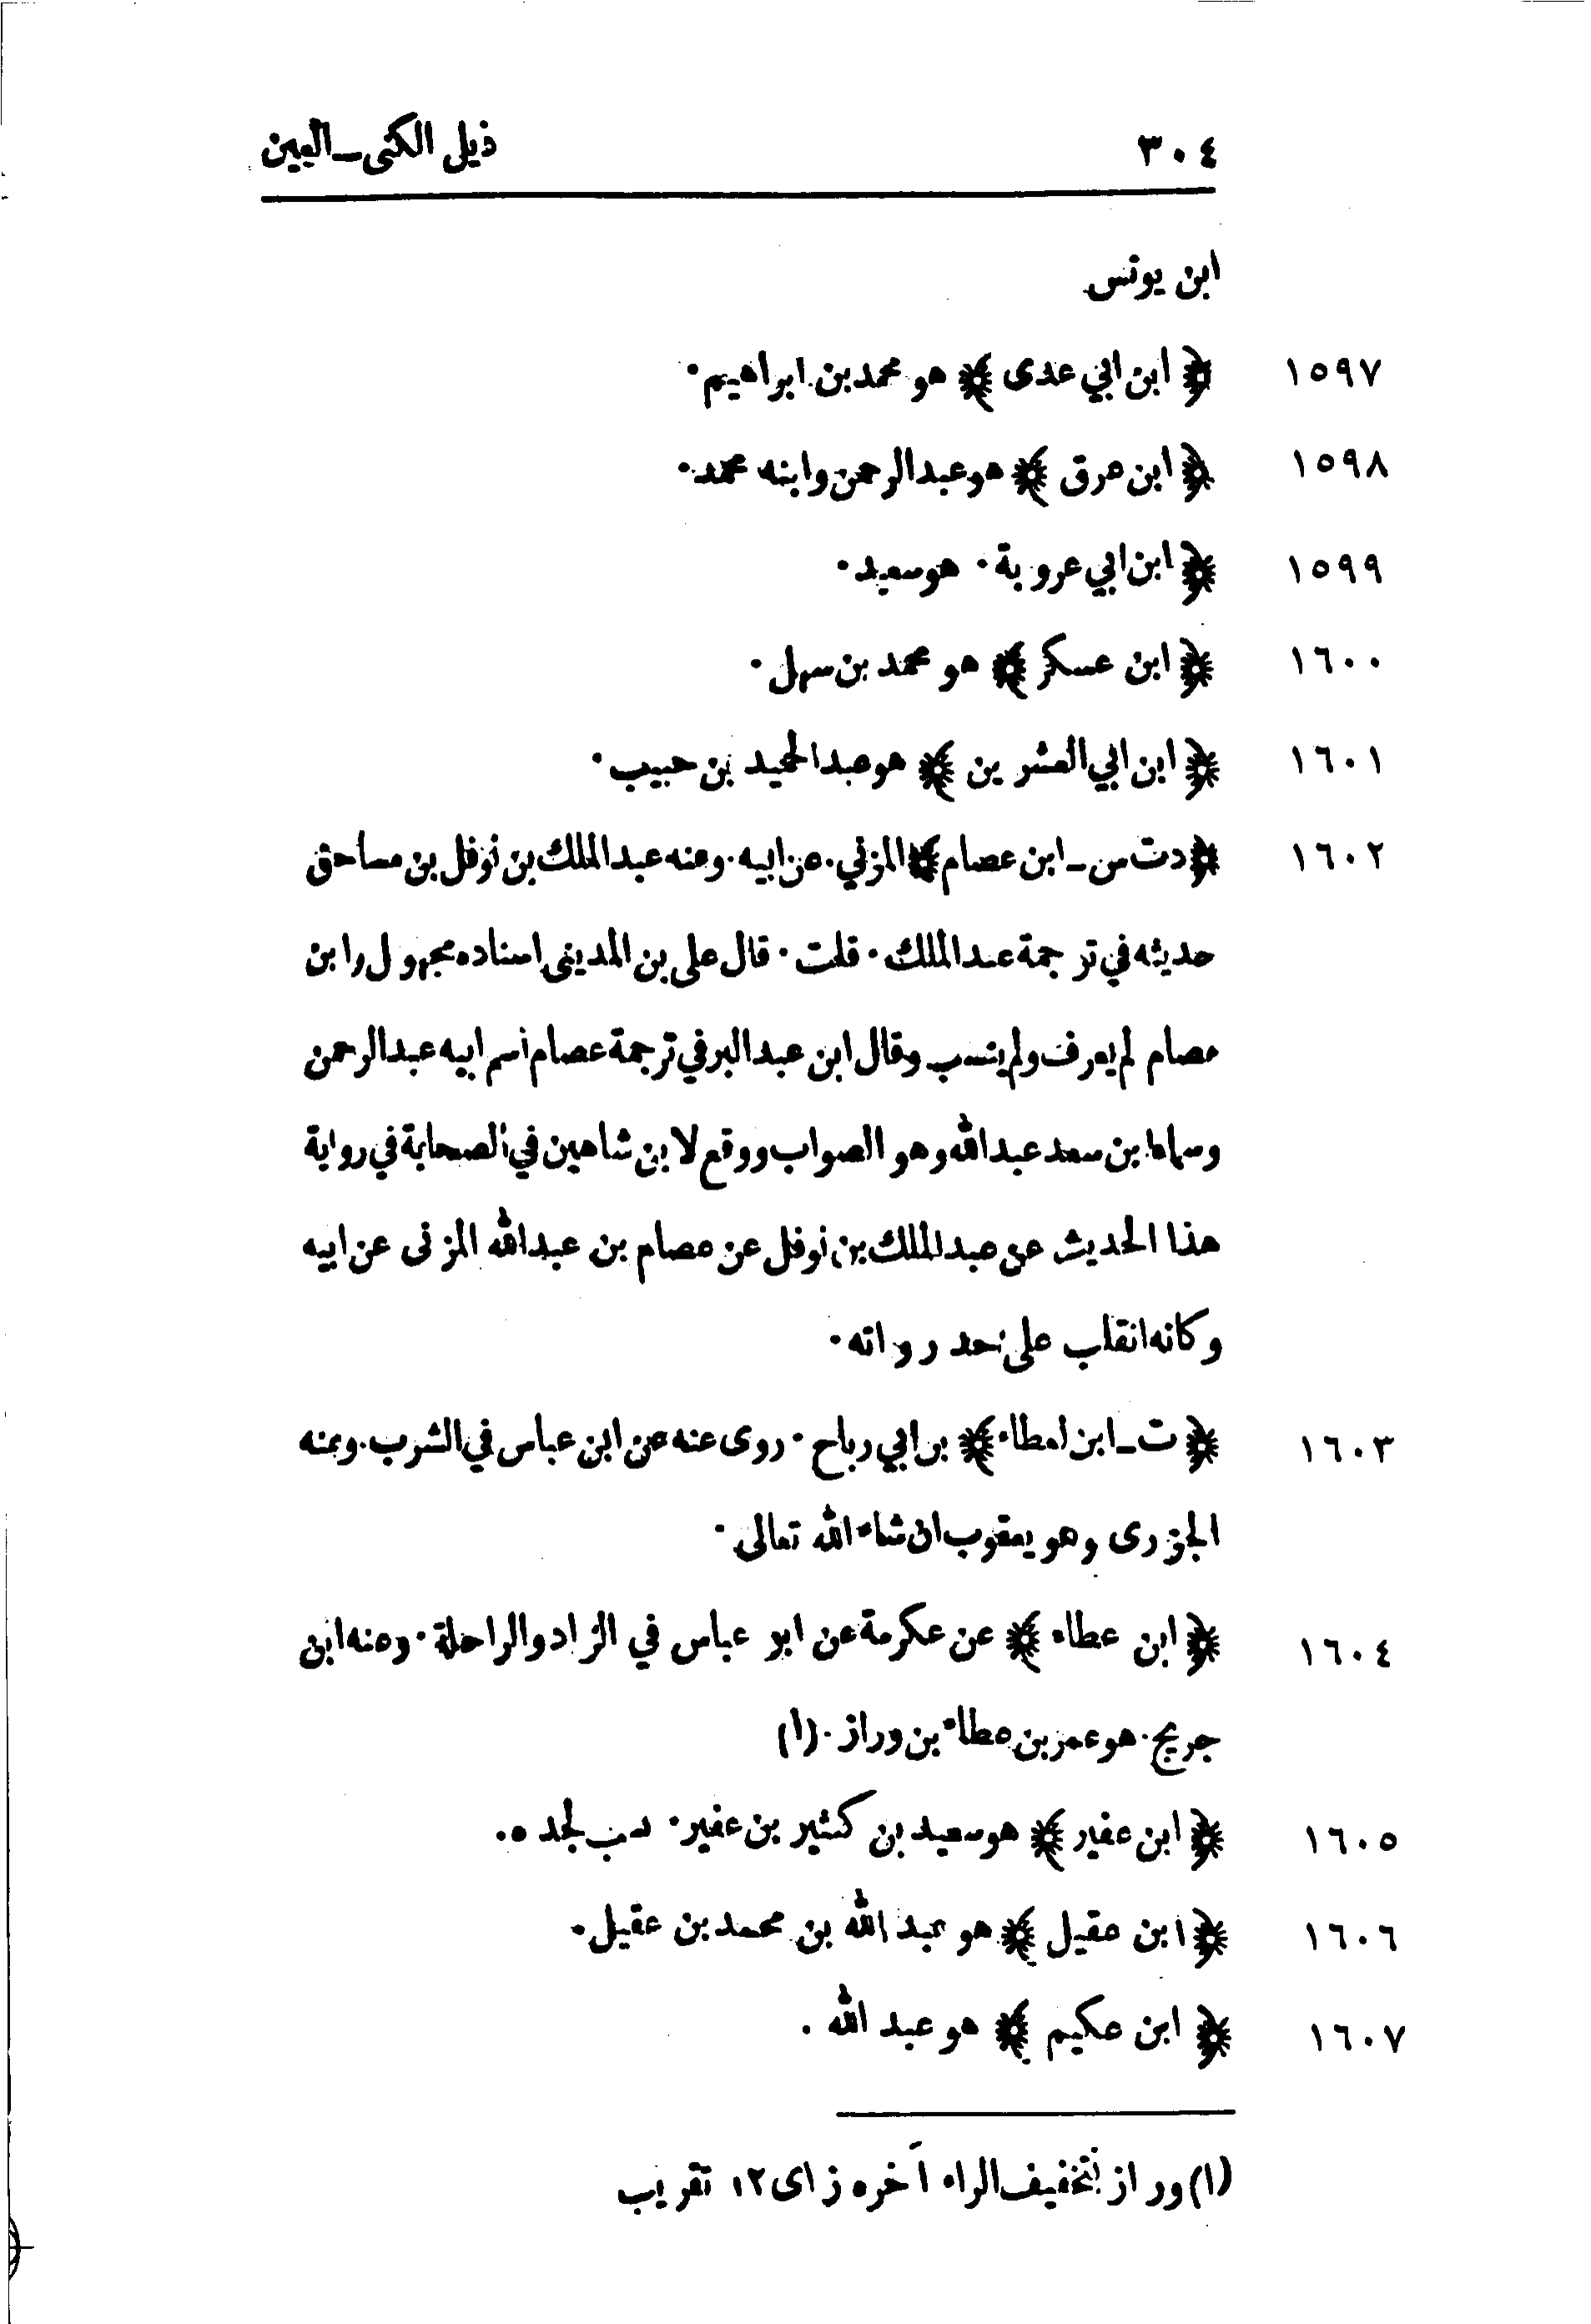 ٣٠٤ ذيل الكنى ــ العين
ابن يونس
١٥٩٧ ﴿ ابن ابي عدى ﴾ هو محمد بن ابراهيم ٠
١٥٩٨ ﴿ ابن عرق ﴾ هو عبد الرحمن وابنه محمد ٠
١٥٩٩ ﴿ ابن ابي عروبة ٠ هو سعيد ٠
١٦٠٠ ﴿ ابن عسكر ﴾ هو محمد بن سهل ٠
١٦٠١ ﴿ ابن ابي العشرين ﴾ هو عبد الحميد بن حبيب ٠
١٦٠٢ ﴿ دت س ــ ابن عصام ﴾ المزني ٠ عن ابيه ٠ وعنه عبد الملك بن نوفل بن مساحق
حديثه في ترجمة عبد الملك ٠ قلت ٠ قال علي بن المديني اسناده مجهول وابن
عصام لم يعرف ولم ينسب وقال ابن عبد البر في ترجمة عصام اسم ابيه عبد الرحمن
وسماه ابن سعد عبد الله وهو الصواب ووقع لابن شاهين في الصحابة في رواية
هذا الحديث عن عبد الملك بن نوفل عن عصام بن عبد الله المزنى عن ابيه
وكانه انقلب على احد رواته ٠
١٦٠٣ ﴿ ت ــ ابن لعطاء ﴾ بن ابي رباح ٠ روى عنه عن ابن عباس في الشرب ٠ وعنه
الجزرى وهو يعقوب ان شاء الله تعالى ٠
١٦٠٤ ﴿ ابن عطاء ﴾ عن عكرمة عن ابو عباس في الزاد والراحلة ٠ وعنه ابن
جريج ٠ هو عمر بن عطاء بن وراز ٠ (١)
١٦٠٥ ﴿ ابن عفير ﴾ هو سعيد بن كثير بن عفير ٠ نسب لجده ٠
١٦٠٦ ﴿ ابن عقيل ﴾ هو عبد الله بن محمد بن عقيل ٠
١٦٠٧ ﴿ ابن عكيم ﴾ هو عبد الله ٠
(١) وراز بتخفيف الراء آخره زاى ١٢ تقريب